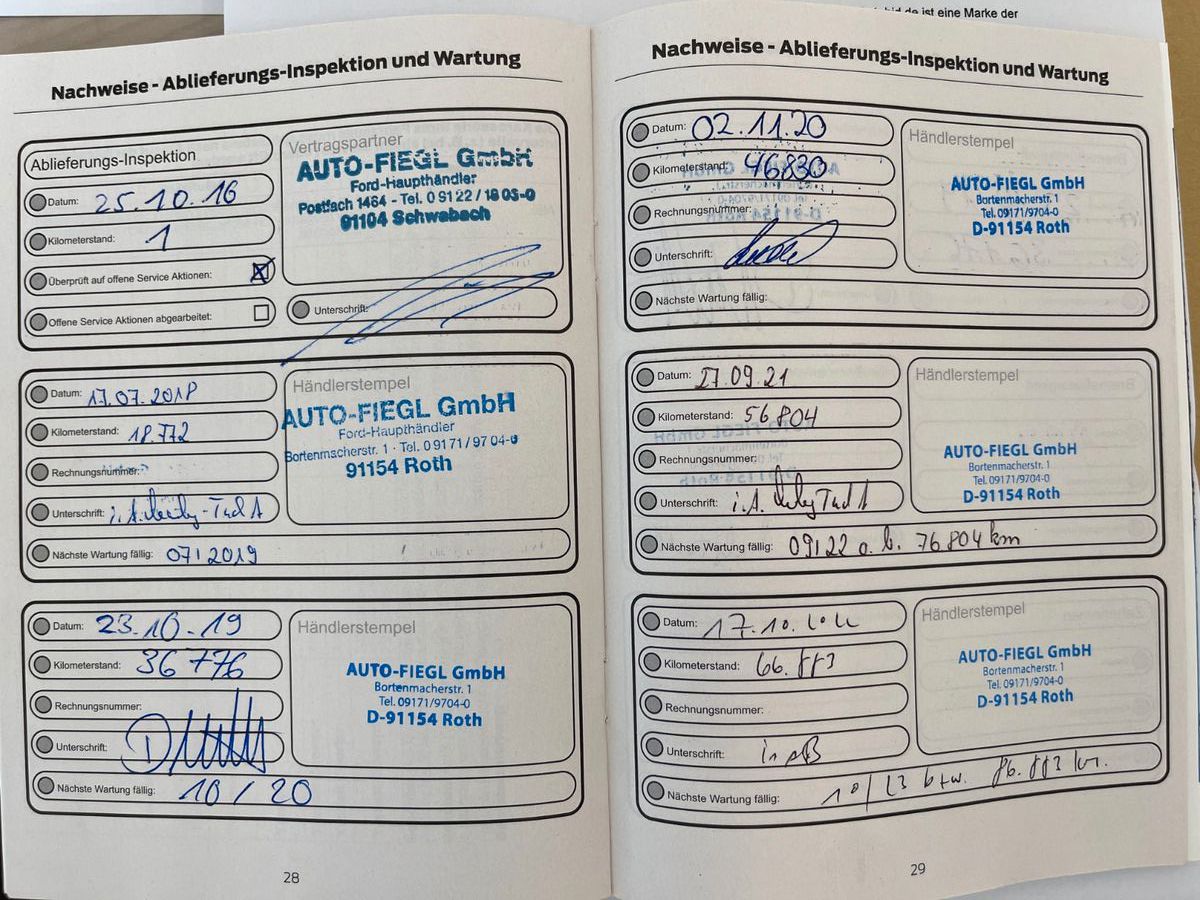 ist eine Marke der
Nachweise - Ablieferungs-Inspektion und Wartung
Ablieferungs-Inspektion
Datum: 25.10.16
Kilometerstand: 1
Überprüft auf offene Service Aktionen: ☒
Offene Service Aktionen abgearbeitet: ☐
Vertragspartner
AUTO-FIEGL GmbH
Ford-Haupthändler
Postfach 1464 - Tel. 0 91 22 / 18 03-0
91104 Schwabach
Unterschrift:
Datum: 17.07.2018
Kilometerstand: 18.772
Rechnungsnummer:
Unterschrift: i.A.
Nächste Wartung fällig: 07/2019
Händlerstempel
AUTO-FIEGL GmbH
Ford-Haupthändler
Bortenmacherstr. 1 · Tel. 0 91 71 / 97 04-0
91154 Roth
Datum: 23.10.19
Kilometerstand: 36776
Rechnungsnummer:
Unterschrift:
Nächste Wartung fällig: 10/20
Händlerstempel
AUTO-FIEGL GmbH
Bortenmacherstr. 1
Tel. 09171/9704-0
D-91154 Roth
28
Nachweise - Ablieferungs-Inspektion und Wartung
Datum: 02.11.20
Kilometerstand: 46830
Rechnungsnummer:
Unterschrift:
Nächste Wartung fällig:
Händlerstempel
AUTO-FIEGL GmbH
Bortenmacherstr. 1
Tel. 09171/9704-0
D-91154 Roth
Datum: 27.09.21
Kilometerstand: 56804
Rechnungsnummer:
Unterschrift: i.A.
Nächste Wartung fällig: 09/22 o. b. 76804 km
Händlerstempel
AUTO-FIEGL GmbH
Bortenmacherstr. 1
Tel. 09171/9704-0
D-91154 Roth
Datum: 17.10.2022
Kilometerstand: 66.883
Rechnungsnummer:
Unterschrift:
Nächste Wartung fällig: 10/23 bzw. 86.883 km.
Händlerstempel
AUTO-FIEGL GmbH
Bortenmacherstr. 1
Tel. 09171/9704-0
D-91154 Roth
29